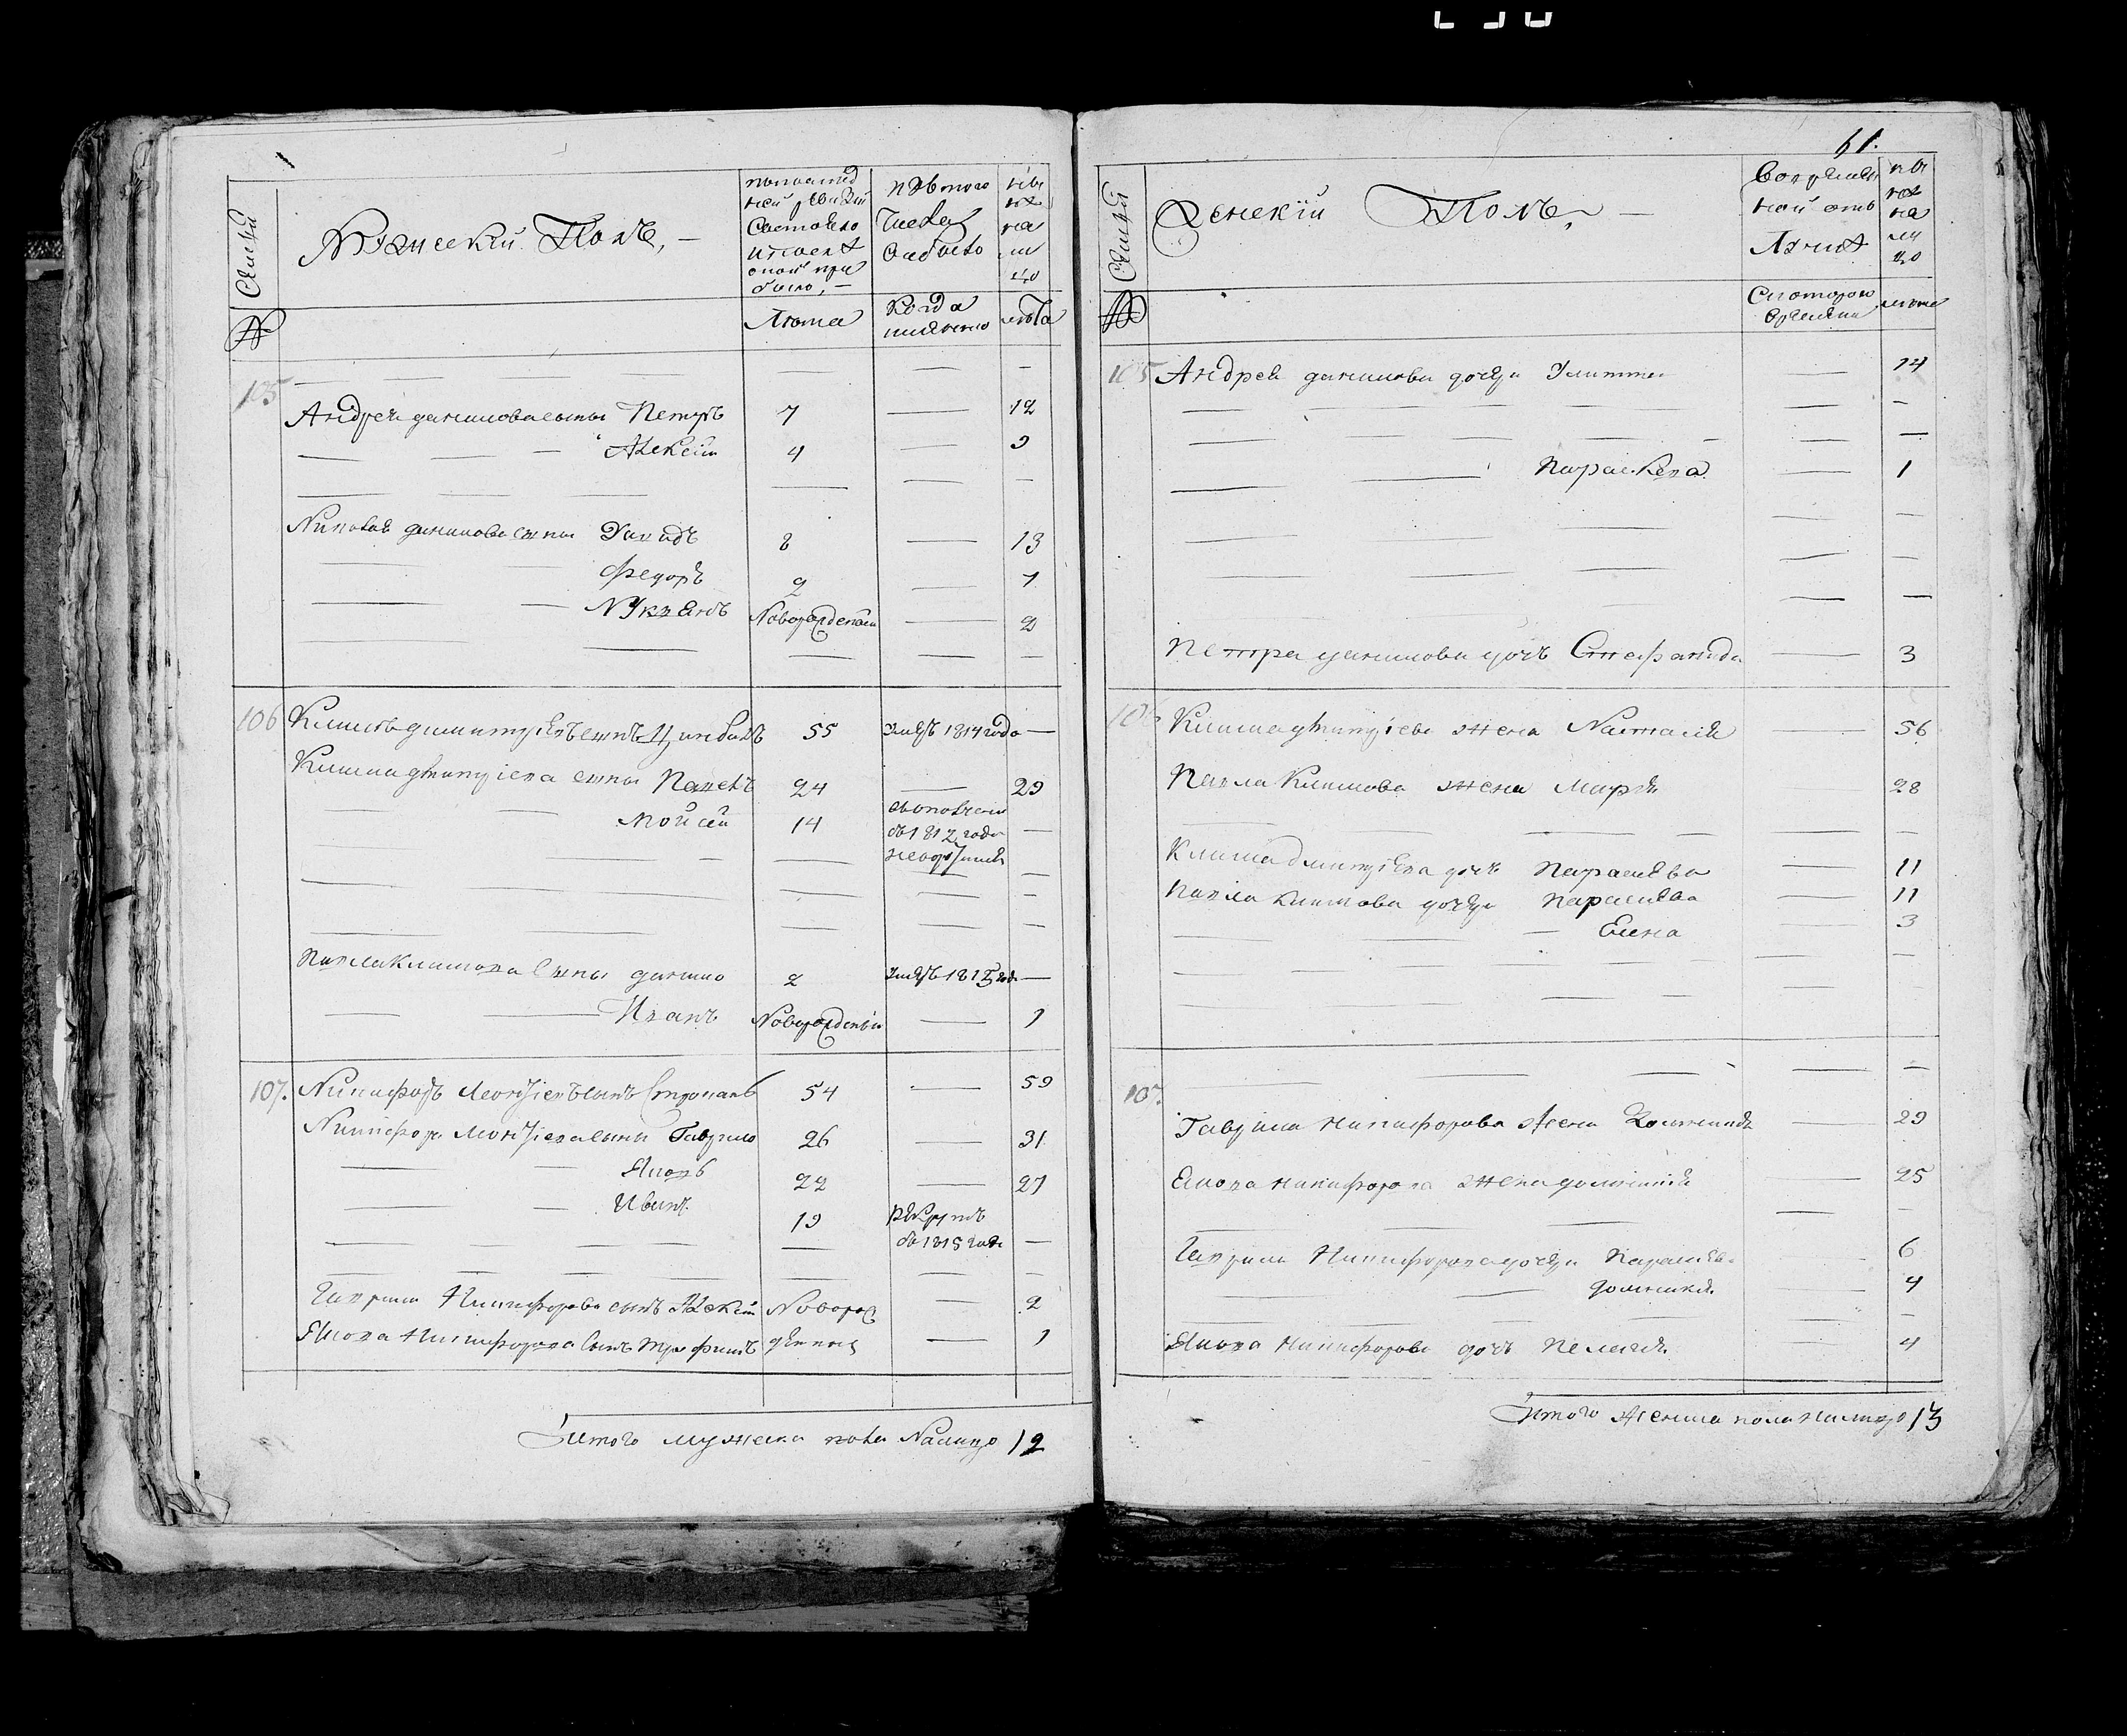 61.
Семьи
Мужескій Полъ,
по последней ревизіи состояло и после оной прибыло,
Изъ того числа выбыло
ныне на лицо
№
Лета
Когда именно
лета
105
Андрея данилова сыны Петръ 7 — 12
Алексей 4 — 9
Николая данилова сыны 8 — 13
Федоръ 2 — 7
Лукьянъ Новорожденной — 2
106 Климъ димитріевъ сынъ 55 умеръ 1814 года —
Клима дмитріева сыны Павелъ 24 — 29
Мойсей 14
въ 1812 годе —
Павла Климова сыны данило 2 умеръ 1815 года —
Иванъ Новорожденны — 1
107. Никифоръ сынъ 54 — 59
Никифора сыны Гаврило 26 — 31
Яковъ 22 — 27
Иванъ 19 рекрутъ
въ 1815 годе —
Гаврила Никифорова сынъ Алексей Новорож — 2
Якова Никифорова сынъ Трофимъ денныя — 1
Итого мужеска пола Налицо 12
Семьи
Женскій Полъ,
Во временной отлучке
ныне на лицо
№
Съ котораго времени
лета
105 Андрея данилова дочери Улитта — 14
Параскева — 1
Петра данилова дочь Стефанида — 3
106 Клима дмитріева жена Наталія — 56
Павла Климова жена Марія 28
Клима дмитріева дочь Параскева — 11
Павла Климова дочери Параскева — 11
Елена 3
107.
Гаврила Никифорова жена — 29
Якова Никифорова жена домникія — 25
Гаврила Никифорова дочери Параскева 6
домникія — 4
Якова Никифорова дочь Пелагія 4
Итого женска пола налицо 13